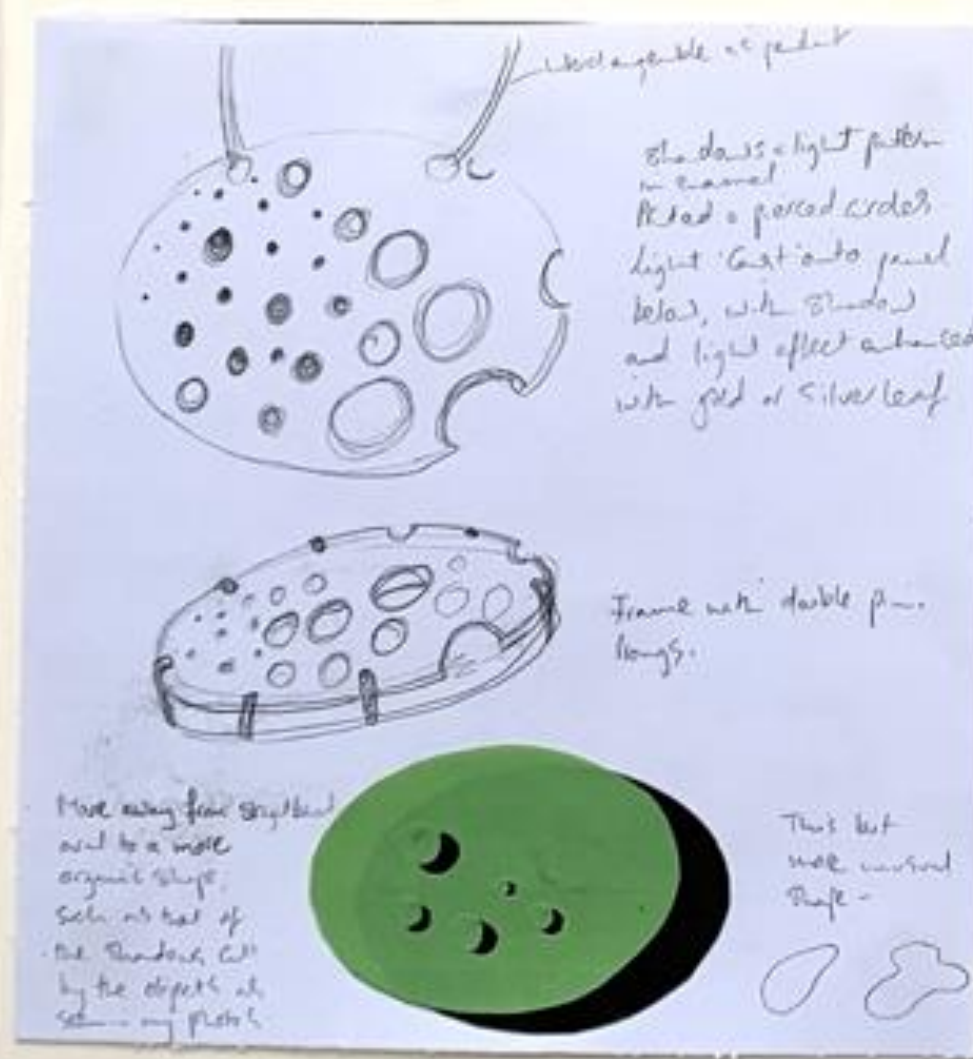 as pendant
Shadows & light pattern
in enamel
pierced circles
light 'Cast' onto panel
below, with shadow
and light effect enhanced
with gold or silver leaf
Frame with double
Prongs.
Move away from
oval to a more
organic shape,
such as that of
the shadows
by the objects
my photos
This but
more unusual
shape -